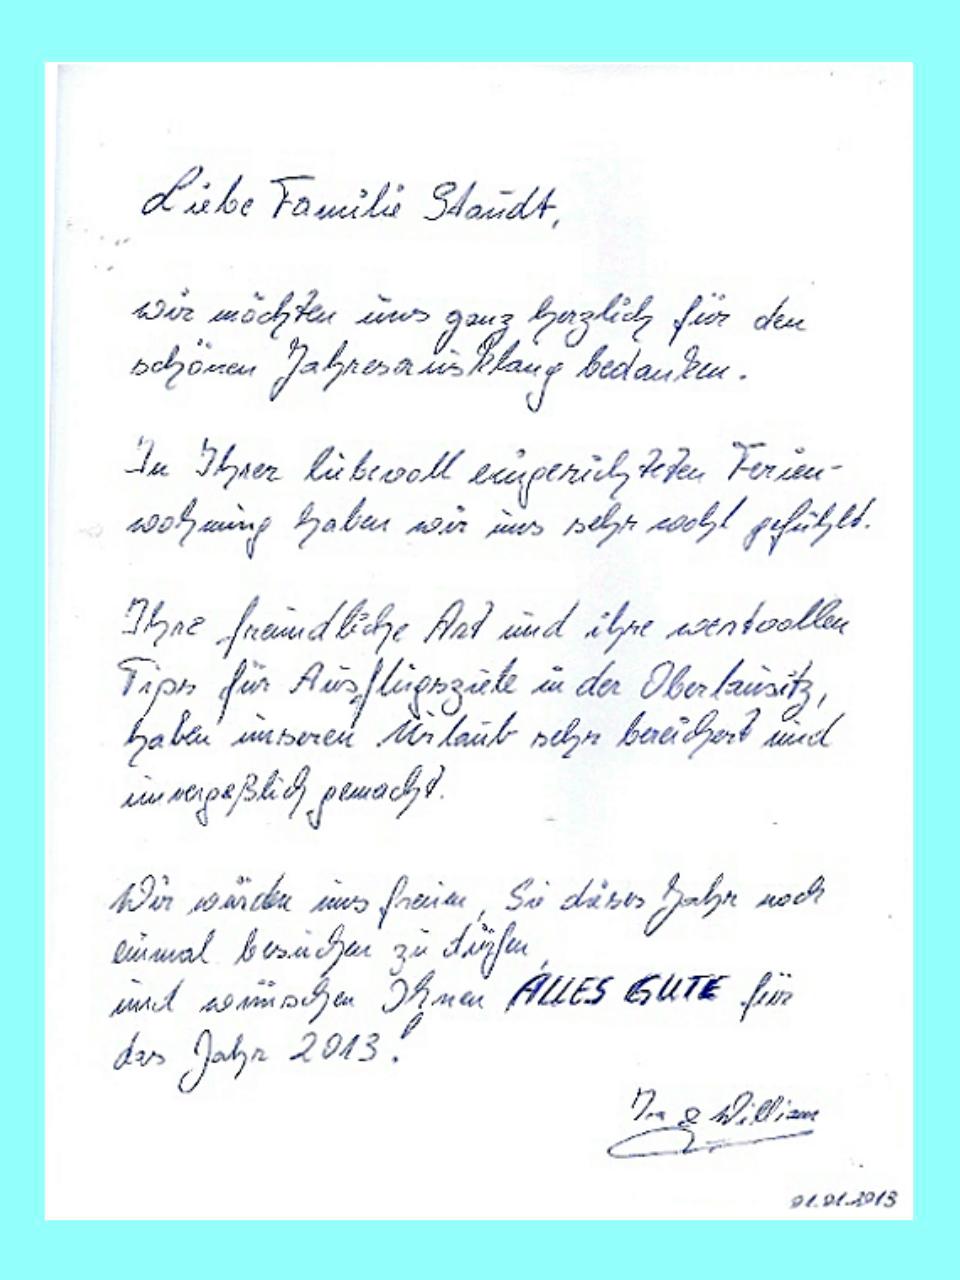 Liebe Familie Staudt,
wir möchten uns ganz herzlich für den
schönen Jahresausklang bedanken.
In Ihrer liebevoll eingerichteten Ferien-
wohnung haben wir uns sehr wohl gefühlt.
Ihre freundliche Art und ihre wertvollen
Tips für Ausflugsziele in der Oberlausitz,
haben unseren Urlaub sehr bereichert und
unvergeßlich gemacht.
Wir würden uns freuen, Sie dieses Jahr noch
einmal besuchen zu dürfen
und wünschen Ihnen ALLES GUTE für
das Jahr 2013!
& William
01.01.2013